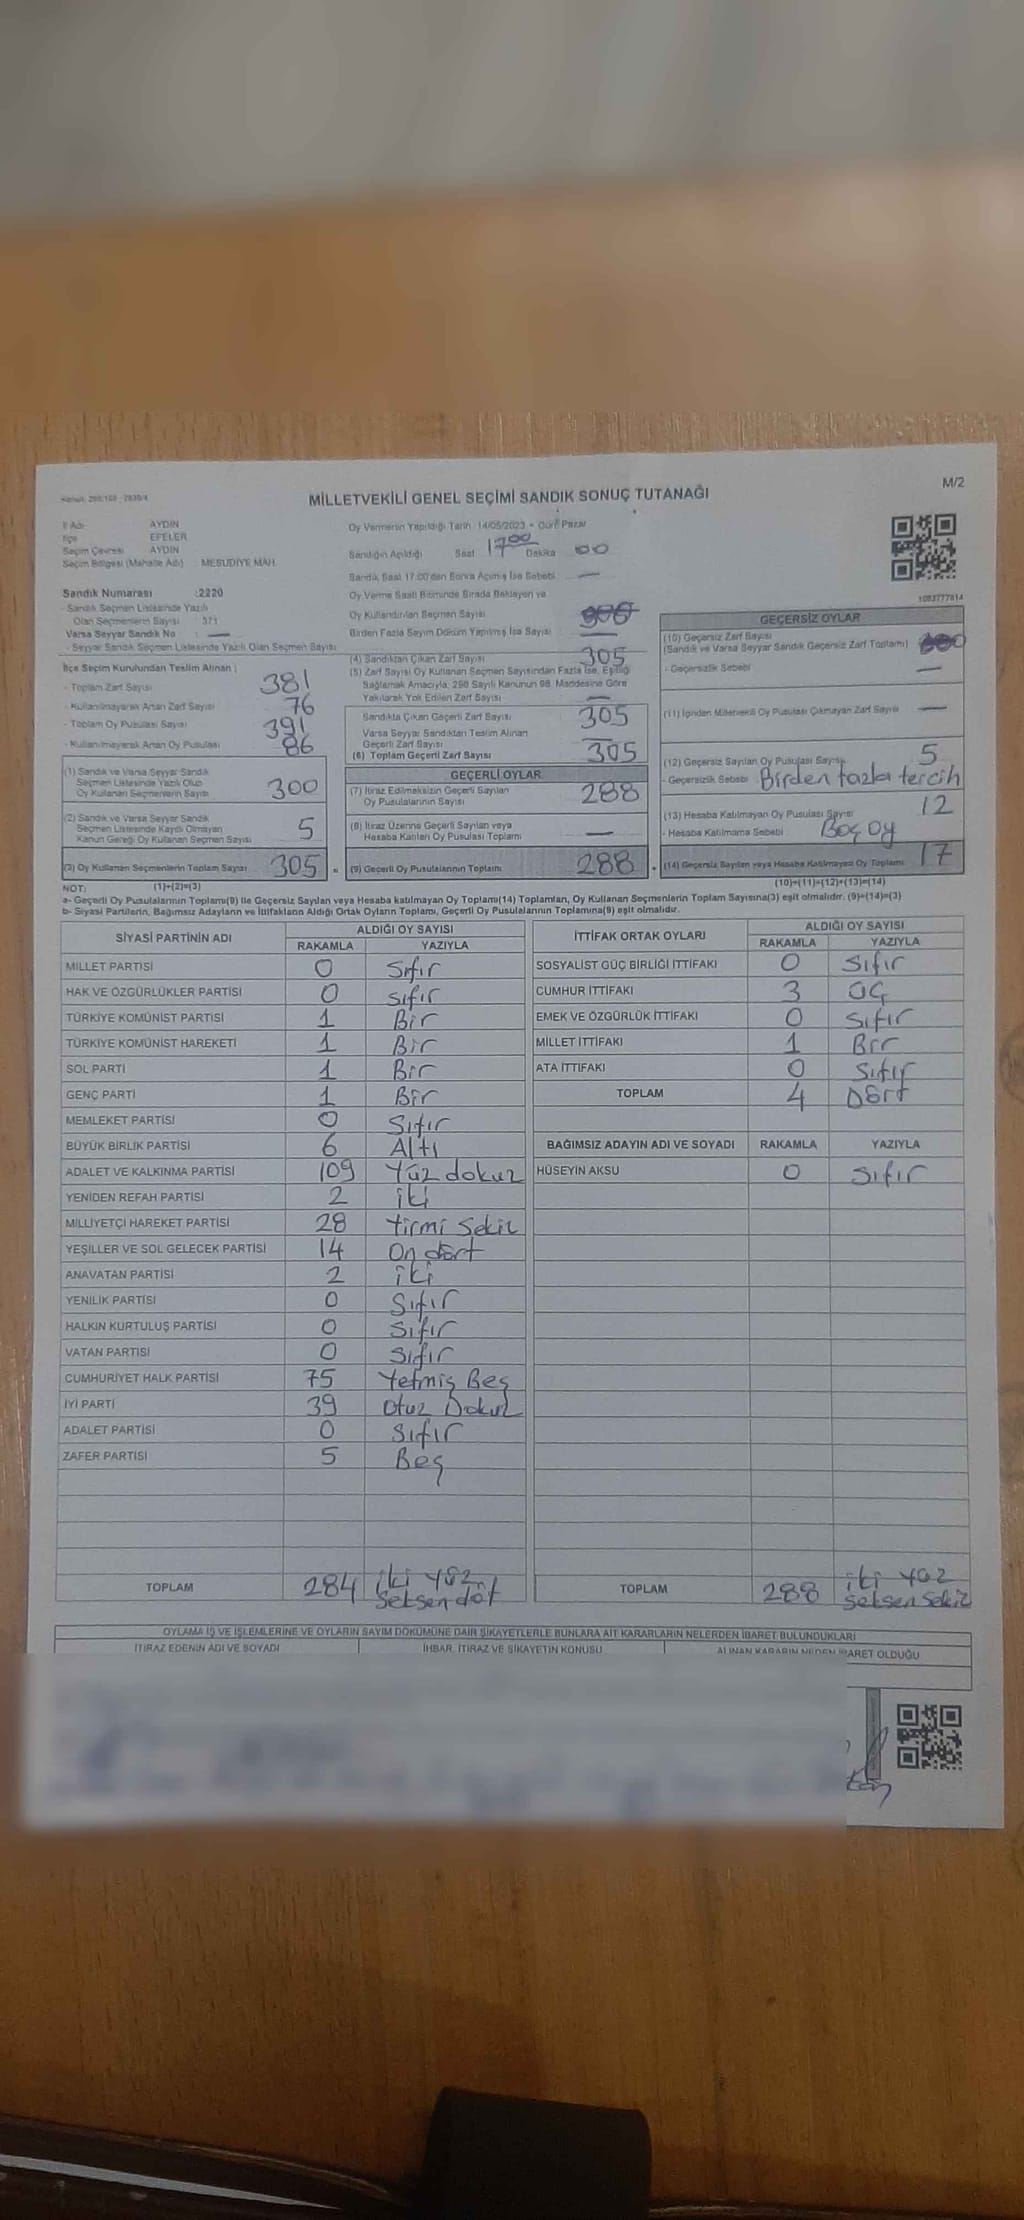 M/2
MİLLETVEKİLİ GENEL SEÇİMİ SANDIK SONUÇ TUTANAĞI
İl Adı AYDIN
İlçe EFELER
Seçim Çevresi AYDIN
Seçim Bölgesi (Mahalle Adı) MESUDİYE MAH.
Oy Vermenin Yapıldığı Tarih 14/05/2023 - Gün: Pazar
Sandığın Açıldığı Saat 17 00 Dakika 00
Sandık Saat 17.00'den Sonra Açılmış İse Sebebi —
Oy Verme Saati Bitiminde Sırada Bekleyen ve
Oy Kullandırılan Seçmen Sayısı
Birden Fazla Sayım Döküm Yapılmış İse Sayısı —
1083777814
Sandık Numarası :2220
- Sandık Seçmen Listesinde Yazılı
Olan Seçmenlerin Sayısı 371
Varsa Seyyar Sandık No : —
- Seyyar Sandık Seçmen Listesinde Yazılı Olan Seçmen Sayısı
İlçe Seçim Kurulundan Teslim Alınan :
- Toplam Zarf Sayısı 381
- Kullanılmayarak Artan Zarf Sayısı 76
- Toplam Oy Pusulası Sayısı 391
- Kullanılmayarak Artan Oy Pusulası 86
(1) Sandık ve Varsa Seyyar Sandık
Seçmen Listesinde Yazılı Olup
Oy Kullanan Seçmenlerin Sayısı 300
(2) Sandık ve Varsa Seyyar Sandık
Seçmen Listesinde Kayıtlı Olmayan
Kanun Gereği Oy Kullanan Seçmen Sayısı 5
(3) Oy Kullanan Seçmenlerin Toplam Sayısı 305
(4) Sandıktan Çıkan Zarf Sayısı 305
(5) Zarf Sayısı Oy Kullanan Seçmen Sayısından Fazla İse, Eşitliği
Sağlamak Amacıyla, 298 Sayılı Kanunun 98. Maddesine Göre
Yakılarak Yok Edilen Zarf Sayısı —
Sandıkta Çıkan Geçerli Zarf Sayısı 305
Varsa Seyyar Sandıktan Teslim Alınan
Geçerli Zarf Sayısı —
(6) Toplam Geçerli Zarf Sayısı 305
GEÇERLİ OYLAR
(7) İtiraz Edilmeksizin Geçerli Sayılan
Oy Pusulalarının Sayısı 288
(8) İtiraz Üzerine Geçerli Sayılan veya
Hesaba Katılan Oy Pusulası Toplamı —
(9) Geçerli Oy Pusulalarının Toplamı 288
GEÇERSİZ OYLAR
(10) Geçersiz Zarf Sayısı
(Sandık ve Varsa Seyyar Sandık Geçersiz Zarf Toplamı)
- Geçersizlik Sebebi —
(11) İçinden Milletvekili Oy Pusulası Çıkmayan Zarf Sayısı —
(12) Geçersiz Sayılan Oy Pusulası Sayısı 5
- Geçersizlik Sebebi Birden fazla tercih
(13) Hesaba Katılmayan Oy Pusulası Sayısı 12
- Hesaba Katılmama Sebebi Boş Oy
(14) Geçersiz Sayılan veya Hesaba Katılmayan Oy Toplamı 17
NOT: (1)+(2)=(3) (10)+(11)+(12)+(13)=(14)
a- Geçerli Oy Pusulalarının Toplamı(9) ile Geçersiz Sayılan veya Hesaba katılmayan Oy Toplamı(14) Toplamları, Oy Kullanan Seçmenlerin Toplam Sayısına(3) eşit olmalıdır. (9)+(14)=(3)
b- Siyasi Partilerin, Bağımsız Adayların ve İttifakların Aldığı Ortak Oyların Toplamı, Geçerli Oy Pusulalarının Toplamına(9) eşit olmalıdır.
SİYASİ PARTİNİN ADI ALDIĞI OY SAYISI
RAKAMLA YAZIYLA
MİLLET PARTİSİ 0 Sıfır
HAK VE ÖZGÜRLÜKLER PARTİSİ 0 sıfır
TÜRKİYE KOMÜNİST PARTİSİ 1 Bir
TÜRKİYE KOMÜNİST HAREKETİ 1 Bir
SOL PARTİ 1 Bir
GENÇ PARTİ 1 Bir
MEMLEKET PARTİSİ 0 Sıfır
BÜYÜK BİRLİK PARTİSİ 6 Altı
ADALET VE KALKINMA PARTİSİ 109 Yüz dokuz
YENİDEN REFAH PARTİSİ 2 iki
MİLLİYETÇİ HAREKET PARTİSİ 28 Yirmi Sekiz
YEŞİLLER VE SOL GELECEK PARTİSİ 14 On dört
ANAVATAN PARTİSİ 2 iki
YENİLİK PARTİSİ 0 Sıfır
HALKIN KURTULUŞ PARTİSİ 0 Sıfır
VATAN PARTİSİ 0 Sıfır
CUMHURİYET HALK PARTİSİ 75 Yetmiş Beş
İYİ PARTİ 39 Otuz Dokuz
ADALET PARTİSİ 0 Sıfır
ZAFER PARTİSİ 5 Beş
TOPLAM 284 iki yüz
seksen döt
İTTİFAK ORTAK OYLARI ALDIĞI OY SAYISI
RAKAMLA YAZIYLA
SOSYALİST GÜÇ BİRLİĞİ İTTİFAKI 0 Sıfır
CUMHUR İTTİFAKI 3 Üç
EMEK VE ÖZGÜRLÜK İTTİFAKI 0 Sıfır
MİLLET İTTİFAKI 1 Bir
ATA İTTİFAKI 0 Sıfır
TOPLAM 4 Dört
BAĞIMSIZ ADAYIN ADI VE SOYADI RAKAMLA YAZIYLA
HÜSEYİN AKSU 0 Sıfır
TOPLAM 288 iki yüz
seksen sekiz
OYLAMA İŞ VE İŞLEMLERİNE VE OYLARIN SAYIM DÖKÜMÜNE DAİR ŞİKAYETLERLE BUNLARA AİT KARARLARIN NELERDEN İBARET BULUNDUKLARI
İTİRAZ EDENİN ADI VE SOYADI İHBAR, İTİRAZ VE ŞİKAYETİN KONUSU ALINAN KARARIN NEDEN İBARET OLDUĞU